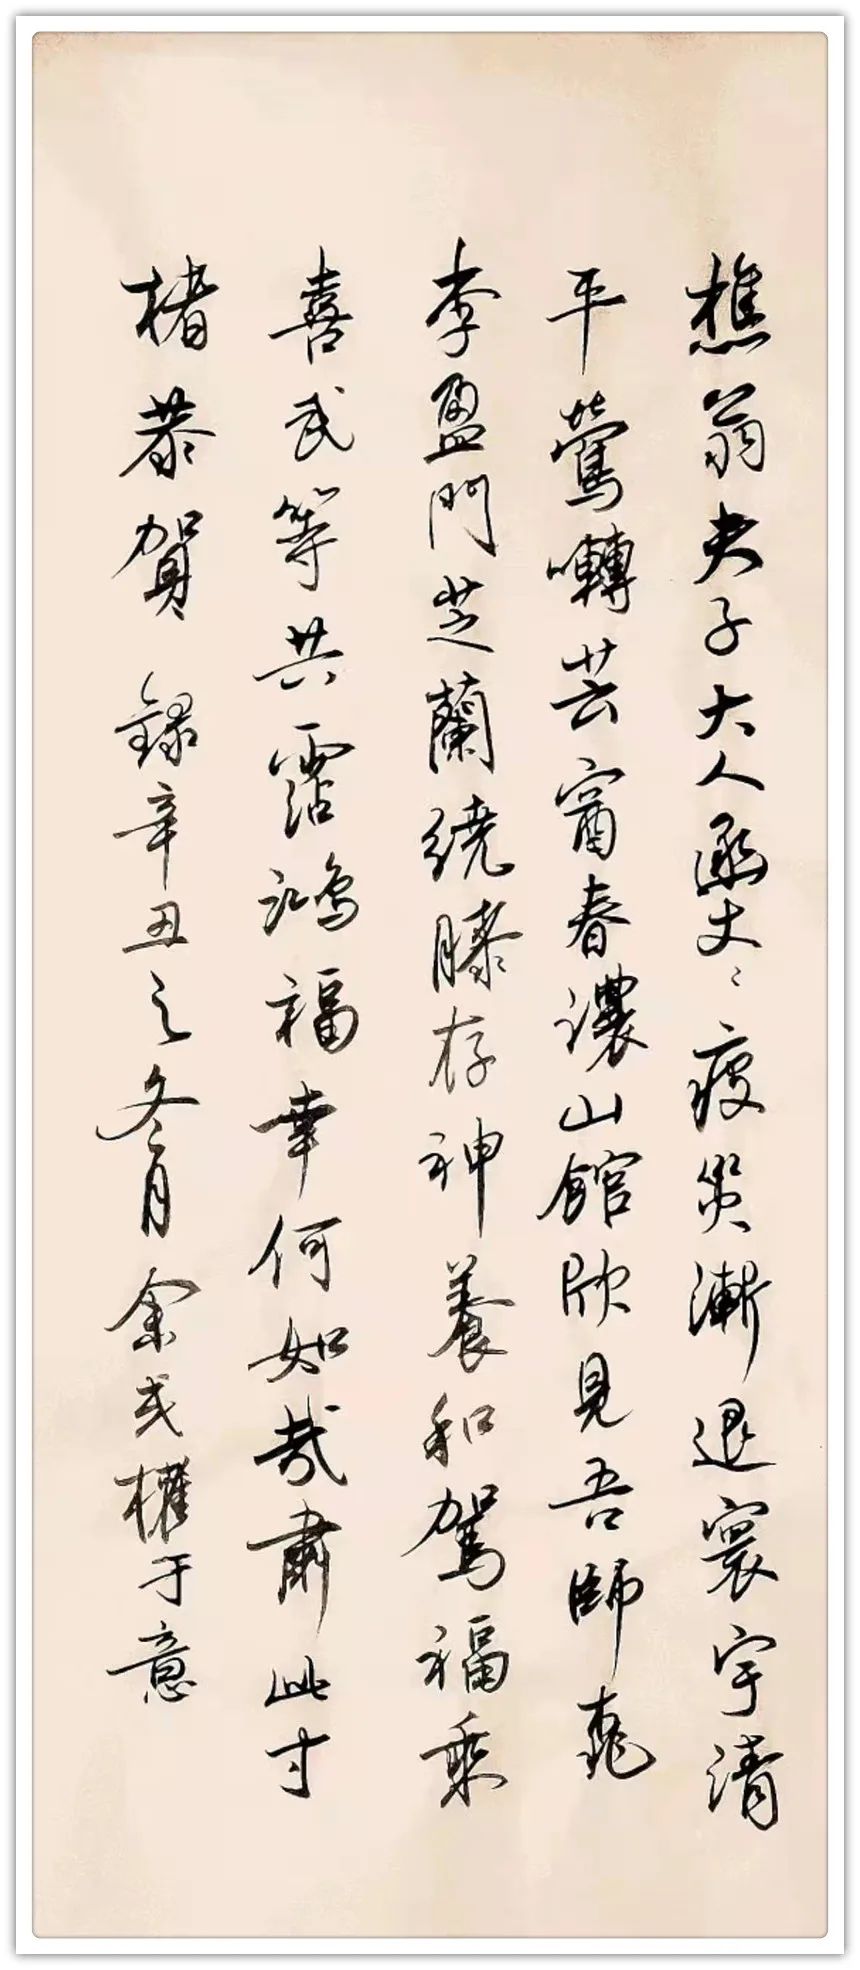 樵翁夫子大人函丈:疫災漸退寰宇清
平鶯囀芸窗春濃山館欣見吾師桃
李盈門芝蘭繞膝存神養和駕福乘
喜武等共霑鴻福幸何如哉肅此寸
楮恭賀 錄辛丑之冬月余武權于意